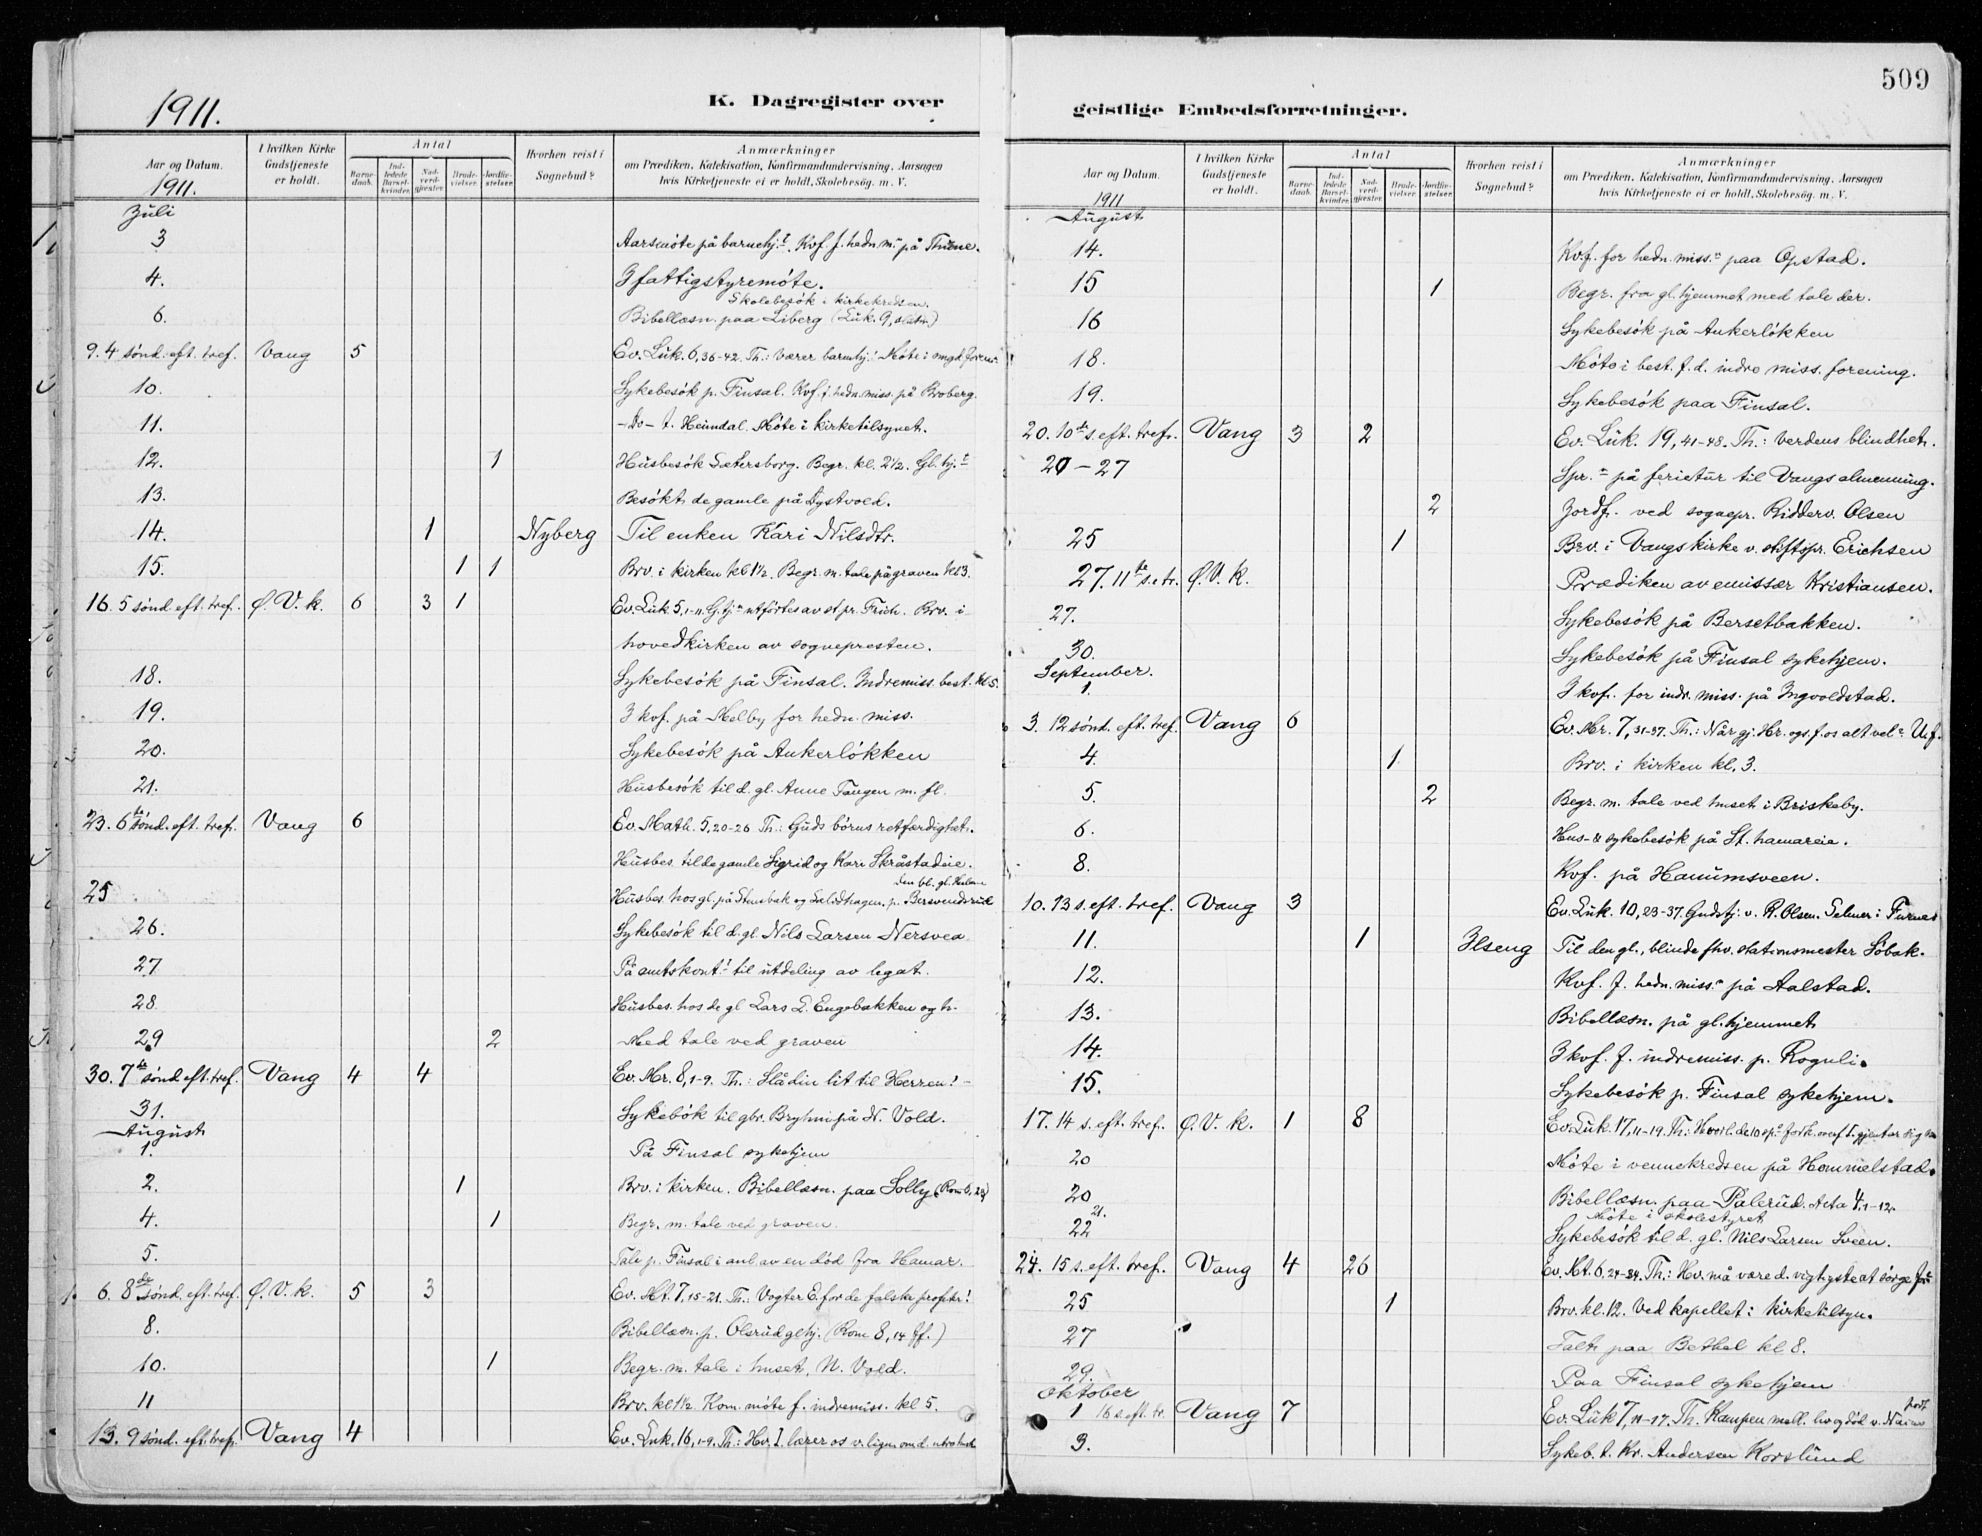 509
1911.
K. Dagregister over
geistlige Embedsforretninger.
Aar og Datum.
I hvilken Kirke Gudstjeneste er holdt.
Antal
Barnedaab.
Indledede Barselkvinder.
Nadverdgjæster.
Brudevielser.
Jordfæstelser.
Hvorhen reist i Sognebud?
Anmærkninger
om Prædiken, Katekisation, Konfirmandundervisning, Aarsagen
hvis Kirketjeneste ei er holdt, Skolebesög. m. V.
1911.
Juli
3 Aarsmöte på barnehj. Kvf. f. hedn. m. på
4. I fattigstyremöte.
Skolebesök i kirkekredsen.
6. Bibellæsn. paa Liberg (Luk. 9,
9. 4 sönd. eft. tref. Vang 5 Ev. Luk. 6, 36-42. Th.: Værer barmhj.! Möte i
10. Sykebesök p. Finsal. Kvf. f. hedn. miss. på Broberg.
11. -Do- t. Heimdal. Möte i kirketilsynet.
12. 1 Husbesök Sætersborg. Begr. kl. 2½. Gl. hj.
13. Besökt de gamle på Dystvold.
14. 1 Nyberg Til enken Kari Nilsdtr.
15. 1 1 Brv. i kirken kl 1½. Begr. m. tale på graven kl 3.
16. 5 sönd. eft. tref. Ø. V. k. 6 3 1 Ev. Luk. 5, 1-11. G.tj. utförtes av st. pr. Brv. i
hovedkirken av sognepresten.
18. Sykebesök på Finsal. Indremiss. best. kl 5.
19. I kvf. på Melby for hedn. miss.
20. Sykebesök på Ankerlökken
21. Husbesök til d. gl. Anne Tangen m. fl.
23. 6te sönd. eft. tref. Vang 6 Ev. Math. 5, 20-26 Th.: Guds börns retfærdighet.
Husbes. til de gamle Sigrid og Kari Skråstadeie.
25 Husbes. hos gl. på Stensbak og p.
26. Sykebesök til d. gl. Nils Larsen Nersvea
27 På amtskont. til utdeling av legat.
28 Husbes. hos de gl Lars L. Engebakken og h.
29 2 Med tale ved graven
30. 7de sönd eft. tref. Vang 4 4 Ev. Mr. 8, 1-9. Th.: Slå din lit til Herren! -
31. Sykebök til gbr. Bryhni på N. Vold.
August
1. På Finsal sykehjem
2. 1 Brv. i kirken. Bibellæsn. paa Solly (Rom 6,
4. 1 Begr. m. tale ved graven.
5. Tale p. Finsal i anl. av en död fra Hamar.
6. 8de sönd. eft. tref. Ø. V. k. 5 3 Ev. Mt. 7, 15-21. Th.: Vogter E. for de falske profeter!
8. Bibellæsn. p. Olsrud glhj. (Rom 8, 14 ff.)
10. 1 Begr. m. tale i huset, N. Vold.
11 Brv. kl 1½. Kom. möte f. indremiss. kl 5.
13. 9 sönd. eft. tref. Vang 4 Ev. Luk. 16, 1-9. Th.: Hv. J. lærer os v. lign. om d.
Aar og Datum.
I hvilken Kirke Gudstjeneste er holdt.
Antal
Barnedaab.
Indledede Barselkvinder.
Nadverdgjæster.
Brudevielser.
Jordfæstelser.
Hvorhen reist i Sognebud?
Anmærkninger
om Prædiken, Katekisation, Konfirmandundervisning, Aarsagen
hvis Kirketjeneste ei er holdt, Skolebesög. m. V.
1911
August
14. Kvf. for hedn. miss. paa Opstad.
15 1 Begr. fra gl. hjemmet med tale der.
16 Sykebesök på Ankerlökken
18. Möte i best. f. d. indre miss. forening.
19. Sykebesök paa Finsal.
20. 10de s. eft. tref. Vang 3 2 Ev. Luk. 19, 41-48. Th.: Verdens blindhet.
20 - 27 Spr. på ferietur til Vangs almenning.
2 Jordf. ved sognepr. Ridderv. Olsen
25 1 Brv. i Vangs kirke v. stiftspr. Erichsen
27. 11te s. e. tr. Ø. V. k. Prædiken av emissær Kristiansen.
27. Sykebesök på Bersetbakken.
30. Sykebesök på Finsal sykehjem.
September.
1. I kvf. for indr. miss. på Ingvoldstad.
3. 12 sönd. eft. tref. Vang 6 Ev. Mr. 7, 31-37. Th.: Når gj. Hr. ogs. f. os alt vel?
4. 1 Brv. i kirken kl. 3.
5. 2 Begr. m. tale ved huset i Briskeby.
6. Hus- & sykebesök på St. hamareie.
8. Kvf. på Hanumsveen.
10. 13 s. eft. tref. Vang 3 Ev. Luk. 10, 23-37. Gudstj. v. R. Olsen. Selmer i Furnes
11. 1 Ilseng Til den gl., blinde fhv. stationsmester Söbak.
12. Kvf. f. hedn. miss. på Aalstad.
13. Bibellæsn. på gl. hjemmet
14. I kvf. f. indremiss. p. Roguli.
15. Sykebesök p. Finsal sykehjem.
17. 14 s. eft. tref. Ø. V. k. 1 8 Ev. Luk. 17, 11-19. Th.: Hvorl. de 10 sp.
20 Möte i vennekredsen på Hommelstad.
20 Bibellæsn. paa Palerud. Acta 4, 1-12.
21. Möte i skolestyret
22 Sykebesök til d. gl. Nils Larsen Sveen.
24. 15 s. eft. tref. Vang 4 26 Ev. Mt. 6, 24-34. Th.: Hv. må være d. vigtigste at sörge for
25 1 Brv. kl. 12. Ved kapellet i kirketilsyn.
27 Talt paa Bethel kl 8.
29. Paa Finsal sykehjem
Oktober
1 16 s. eft. tr. Vang 7 Ev. Luk 7, 11-17. Th. Kampen mell. liv og död v. Nains port
3. Sykeb. t. Kr. Andersen Korslund